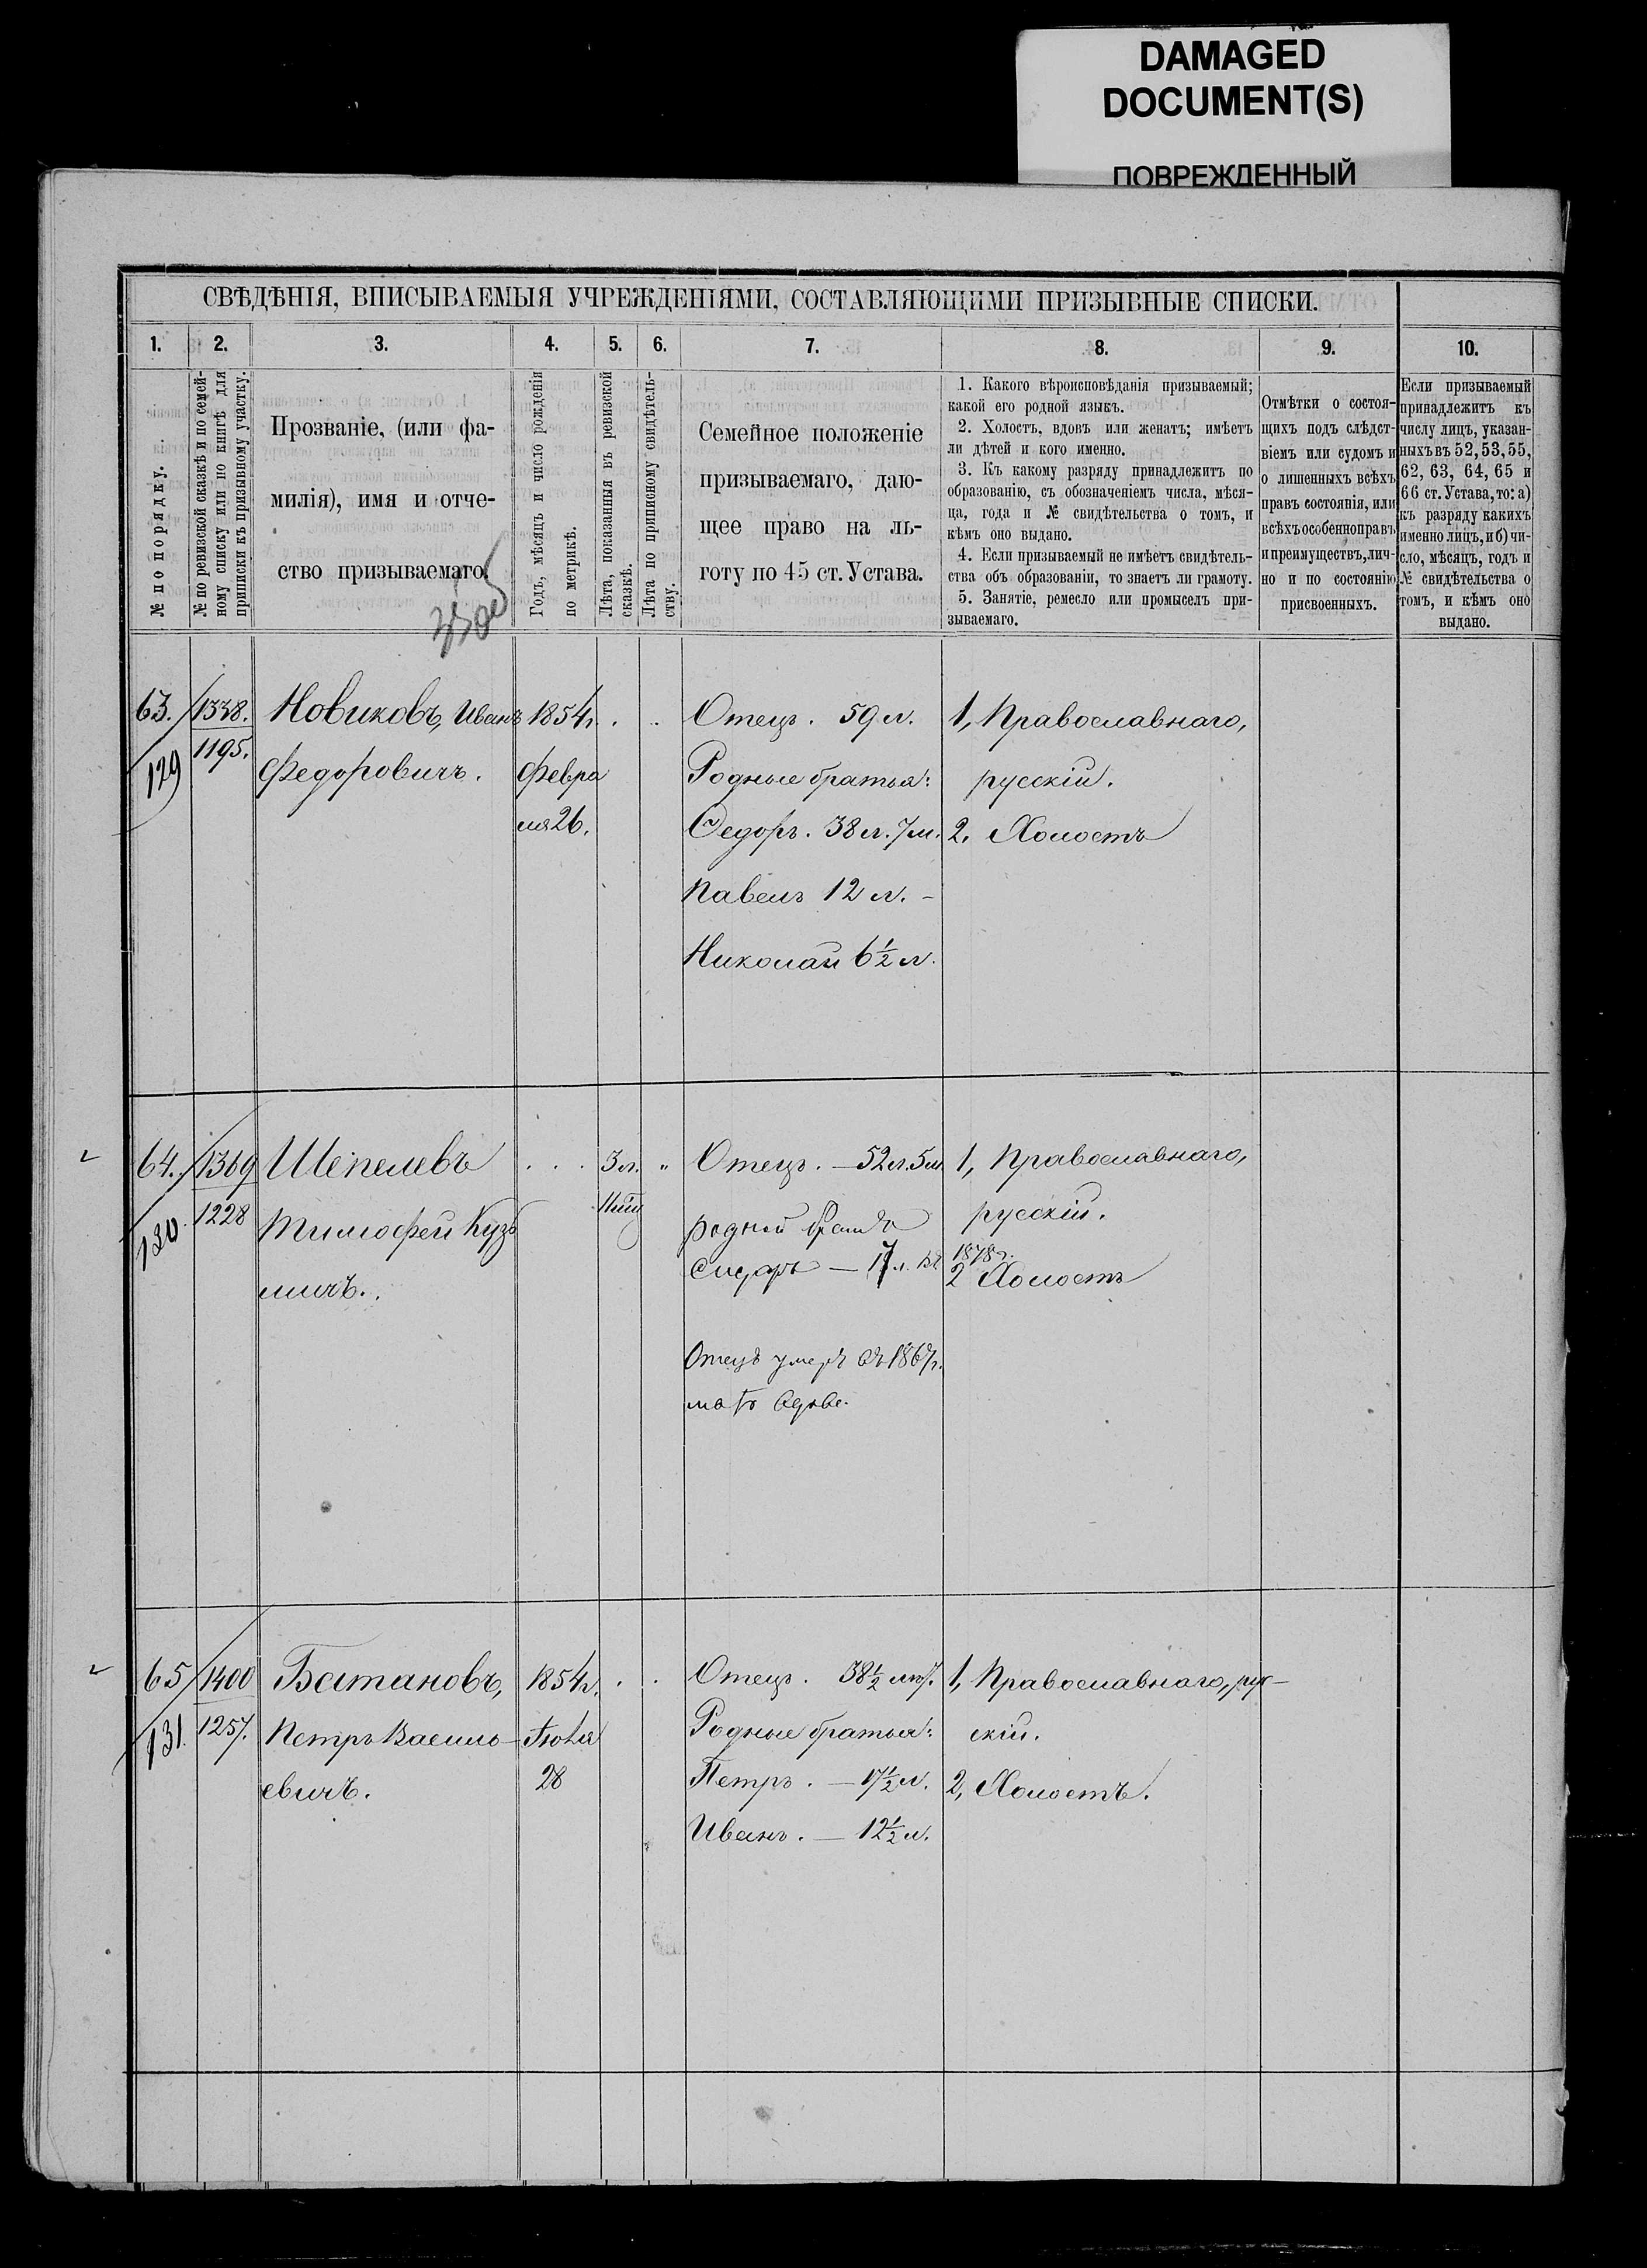 DAMAGED
DOCUMENT(S)
ПОВРЕЖДЕННЫЙ
СВѢДѢНІЯ, ВПИСЫВАЕМЫЯ УЧРЕЖДЕНІЯМИ, СОСТАВЛЯЮЩИМИ ПРИЗЫВНЫЕ СПИСКИ.
1. 2. 3. 4. 5. 6. 7. 8. 9. 10.
№ по порядку.
№ по ревизской сказкѣ и по семей-
ному списку или по книгѣ для
приписки къ призывному участку.
Прозваніе, (или фа-
милія), имя и отче-
ство призываемаго.
Годъ, мѣсяцъ и число рожденія
по метрикѣ.
Лѣта, показанныя въ ревизской
сказкѣ.
Лѣта по приписному свидѣтель-
ству.
Семейное положеніе
призываемаго, даю-
щее право на ль-
готу по 45 ст. Устава.
1. Какого вѣроисповѣданія призываемый;
какой его родной языкъ.
2. Холостъ, вдовъ или женатъ; имѣетъ
ли дѣтей и кого именно.
3. Къ какому разряду принадлежитъ по
образованію, съ обозначеніемъ числа, мѣся-
ца, года и № свидѣтельства о томъ, и
кѣмъ оно выдано.
4. Если призываемый не имѣетъ свидѣтель-
ства объ образованіи, то знаетъ ли грамоту.
5. Занятіе, ремесло или промыселъ при-
зываемаго.
Отмѣтки о состоя-
щихъ подъ слѣдст-
віемъ или судомъ и
о лишенныхъ всѣхъ
правъ состоянія, или
всѣхъ особенно правъ
и преимуществъ, лич-
но и по состоянію
присвоенныхъ.
Если призываемый
принадлежитъ къ
числу лицъ, указан-
ныхъ въ 52, 53, 55,
62, 63, 64, 65 и
66 ст. Устава, то: а)
къ разряду какихъ
именно лицъ, и б) чи-
сло, мѣсяцъ, годъ и
№ свидѣтельства о
томъ, и кѣмъ оно
выдано.
63.
129
1338.
1195.
Новиковъ, Иванъ
Федоровичъ.
1854г.
Февра
ля 26.
Отецъ. 59 л.
Родные братья:
Ѳедоръ. 38 л. 7 м.
Павелъ 12 л. -
Николай 6½ л.
1, Православнаго,
русскій.
2. Холостъ
64.
130.
1369
1228
Шепелевъ
Тимофей Кузь
мичъ.
3 л.
"
Отецъ. — 52 л. 5 м
родной братъ
Сидоръ — 17 л.
Отецъ умеръ въ 1867г.
мать вдова.
1, Православнаго,
русскій.
1878г.
2 Холостъ
65
131.
1400
1257.
Батановъ,
Петръ Василь-
евичъ.
1854г.
Іюля
28
Отецъ. 38½ лѣт.
Родные братья:
Петръ. — 17½ л.
Иванъ. — 12½ л.
1, Православнаго, рус-
скій.
2, Холостъ.